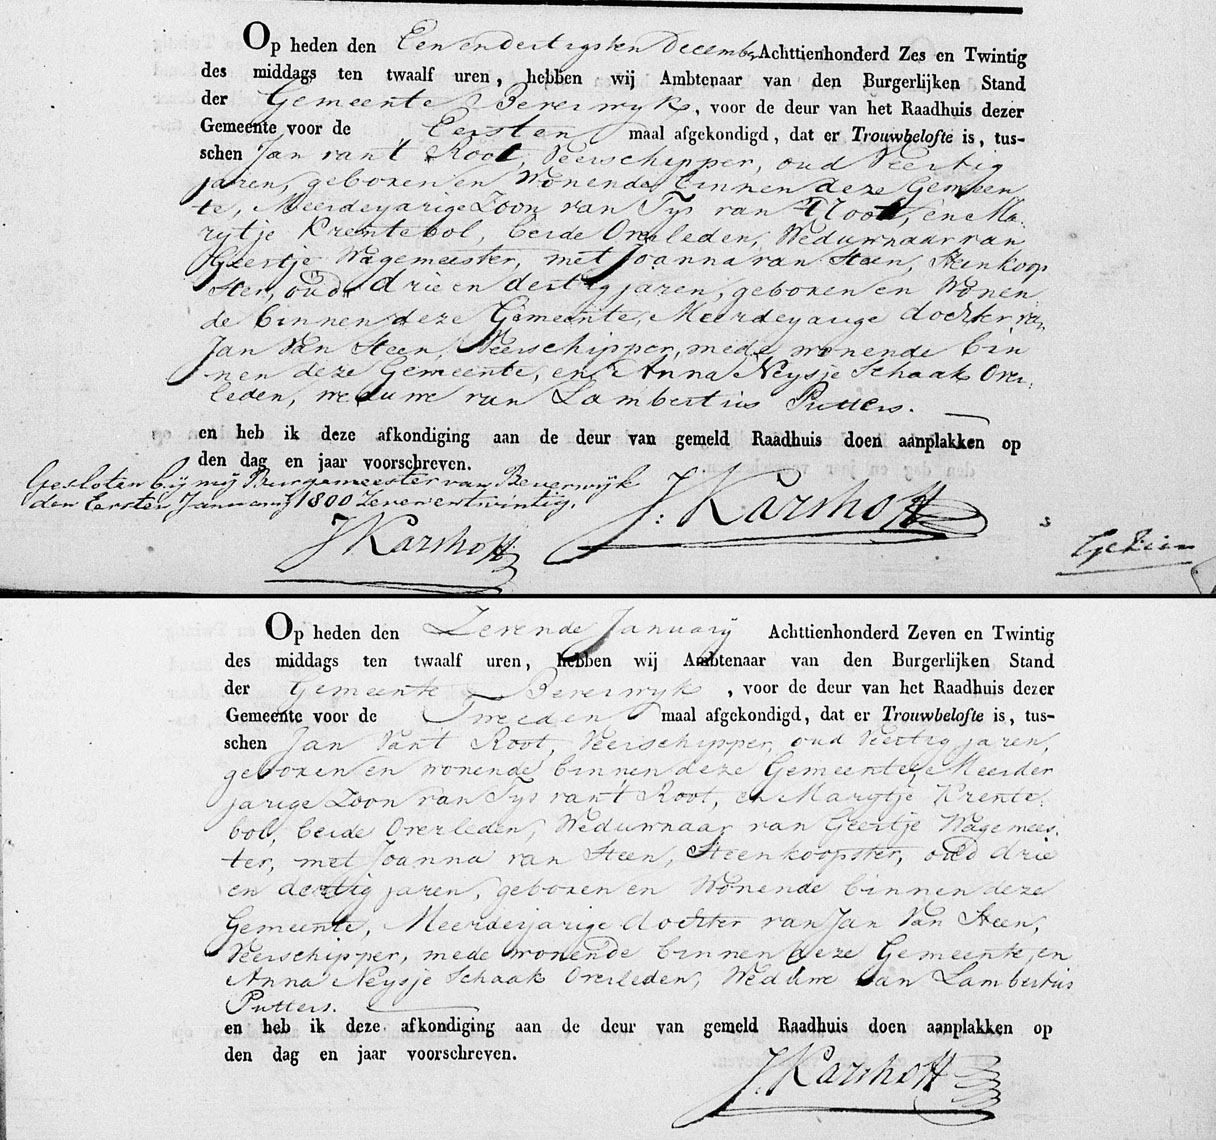 Op heden den Een en dertigsten December Achttienhonderd Zes en Twintig
des middags ten twaalf uren, hebben wij Ambtenaar van den Burgerlijken Stand
der Gemeente Beverwyk, voor de deur van het Raadhuis dezer
Gemeente voor de Eersten maal afgekondigd, dat er Trouwbelofte is, tus-
schen Jan van't Root, Veerschipper, oud Veertig
jaren, geboren en Wonende binnen deze Gemeen
te, Meerderjarige Zoon van Tys van 't Root, en Ma-
rytje Krentebol, beide Overleden, Weduwnaar van
Geertje Wagemeester, met Joanna van Steen, Steenkoop
ster, oud drie en dertig jaren, geboren en Wonen
de binnen deze Gemeente, Meerderjarige dochter van
Jan Van Steen, Veerschipper, mede wonende bin
nen deze Gemeente, en Anna Neysje Schaak Over-
leden, weduwe van Lambertus Putters.
en heb ik deze afkondiging aan de deur van gemeld Raadhuis doen aanplakken op
den dag en jaar voorschreven.
Gesloten bij mij Burgemeester van Beverwijk
den Eersten January 1800 Zevenentwintig.
J. Karshoff
J Karshoff
Op heden den Zevende January Achttienhonderd Zeven en Twintig
des middags ten twaalf uren, hebben wij Ambtenaar van den Burgerlijken Stand
der Gemeente Beverwyk, voor de deur van het Raadhuis dezer
Gemeente voor de Tweeden maal afgekondigd, dat er Trouwbelofte is, tus-
schen Jan Vant Root, Veerschipper, oud Veertig jaren,
geboren en wonende binnen deze Gemeente, Meerder
jarige Zoon van Tys van't Root, en Marytje Krente-
bol, beide Overleden, Weduwnaar van Geertje Wagemees-
ter, met Joanna van Steen, Steenkoopster, oud drie
en dertig jaren, geboren en Wonende binnen deze
Gemeente, Meerderjarige dochter van Jan Van Steen,
Veerschipper, mede wonende binnen deze Gemeente, en
Anna Neysje Schaak Overleden, Weduwe van Lambertus
Putters.
en heb ik deze afkondiging aan de deur van gemeld Raadhuis doen aanplakken op
den dag en jaar voorschreven.
J. Karshoff